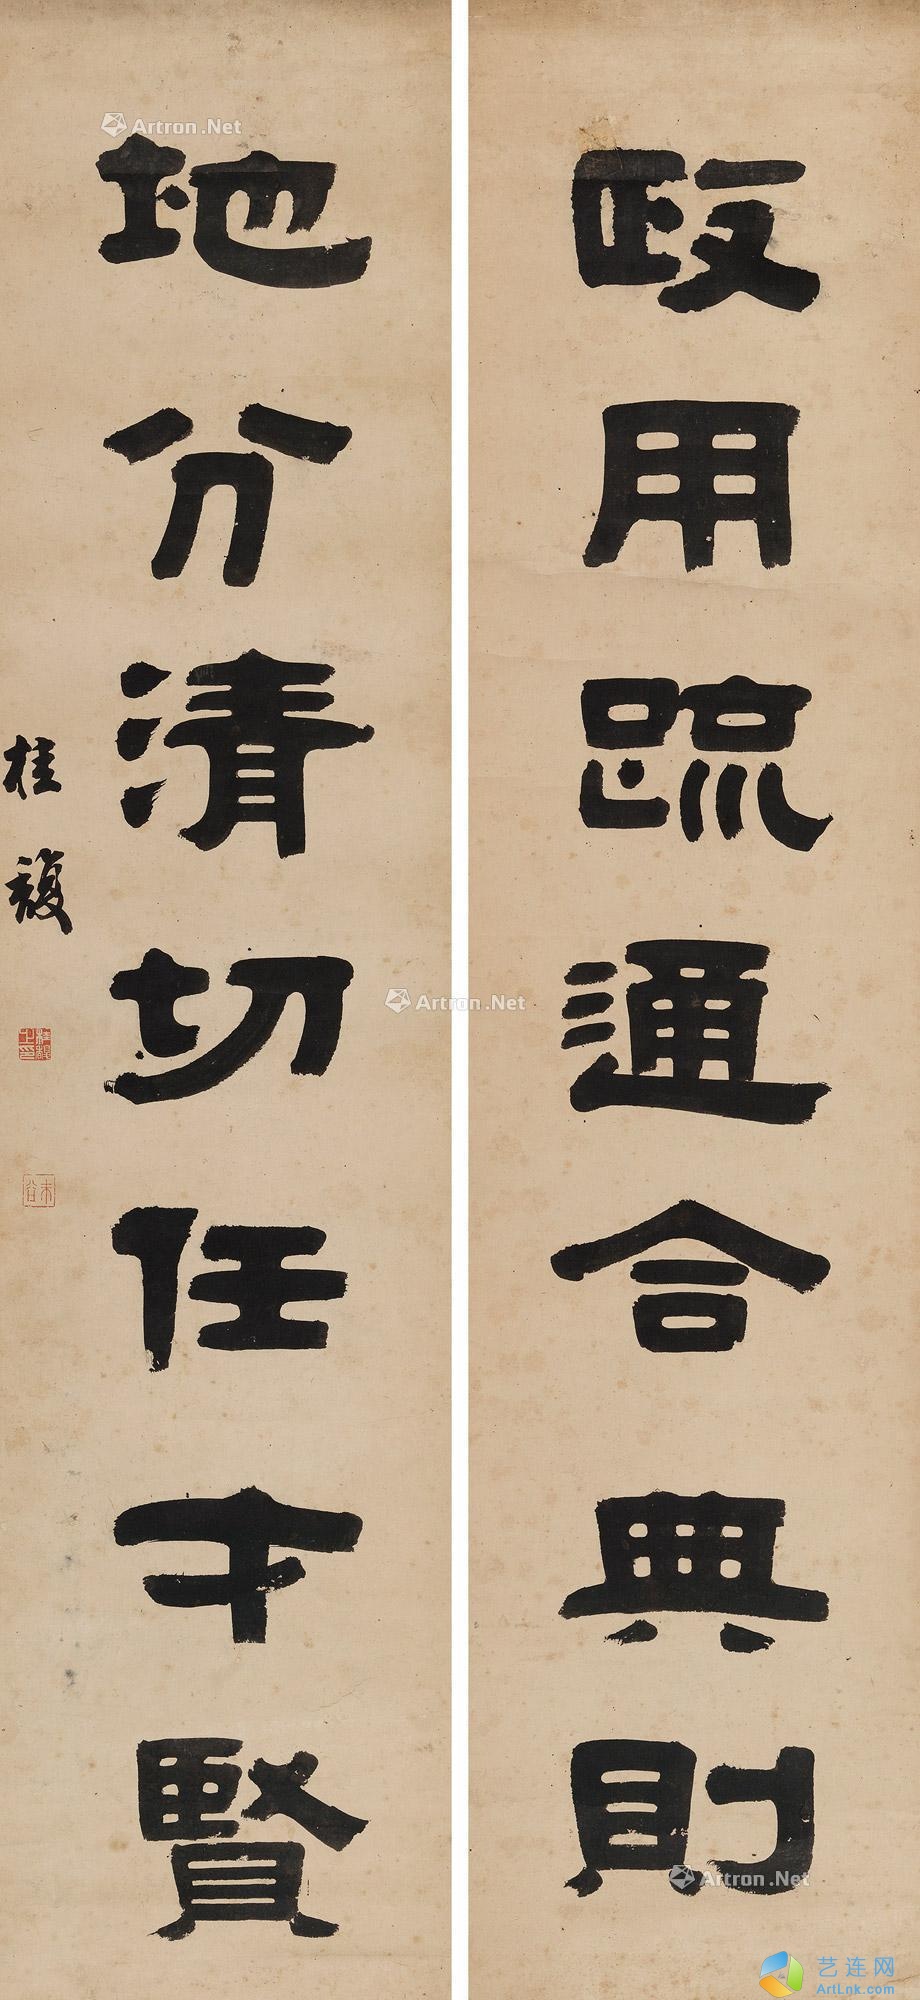 政用疏通合典則
地分清切任才賢
桂馥
桂馥之印
未谷
Artron.Net
Artron.Net
Artron.Net
艺连网
ArtLnk.com